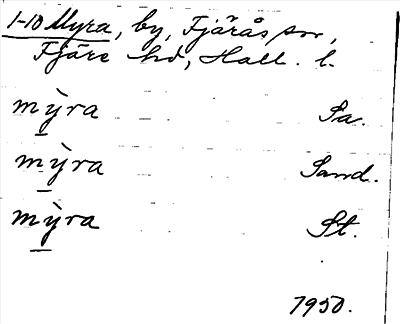 1-10 Myra, by, Fjärås sn,
Fjäre hd, Hall. l.
mỳra Sa.
mỳra Sand.
mỳra St.
1950.